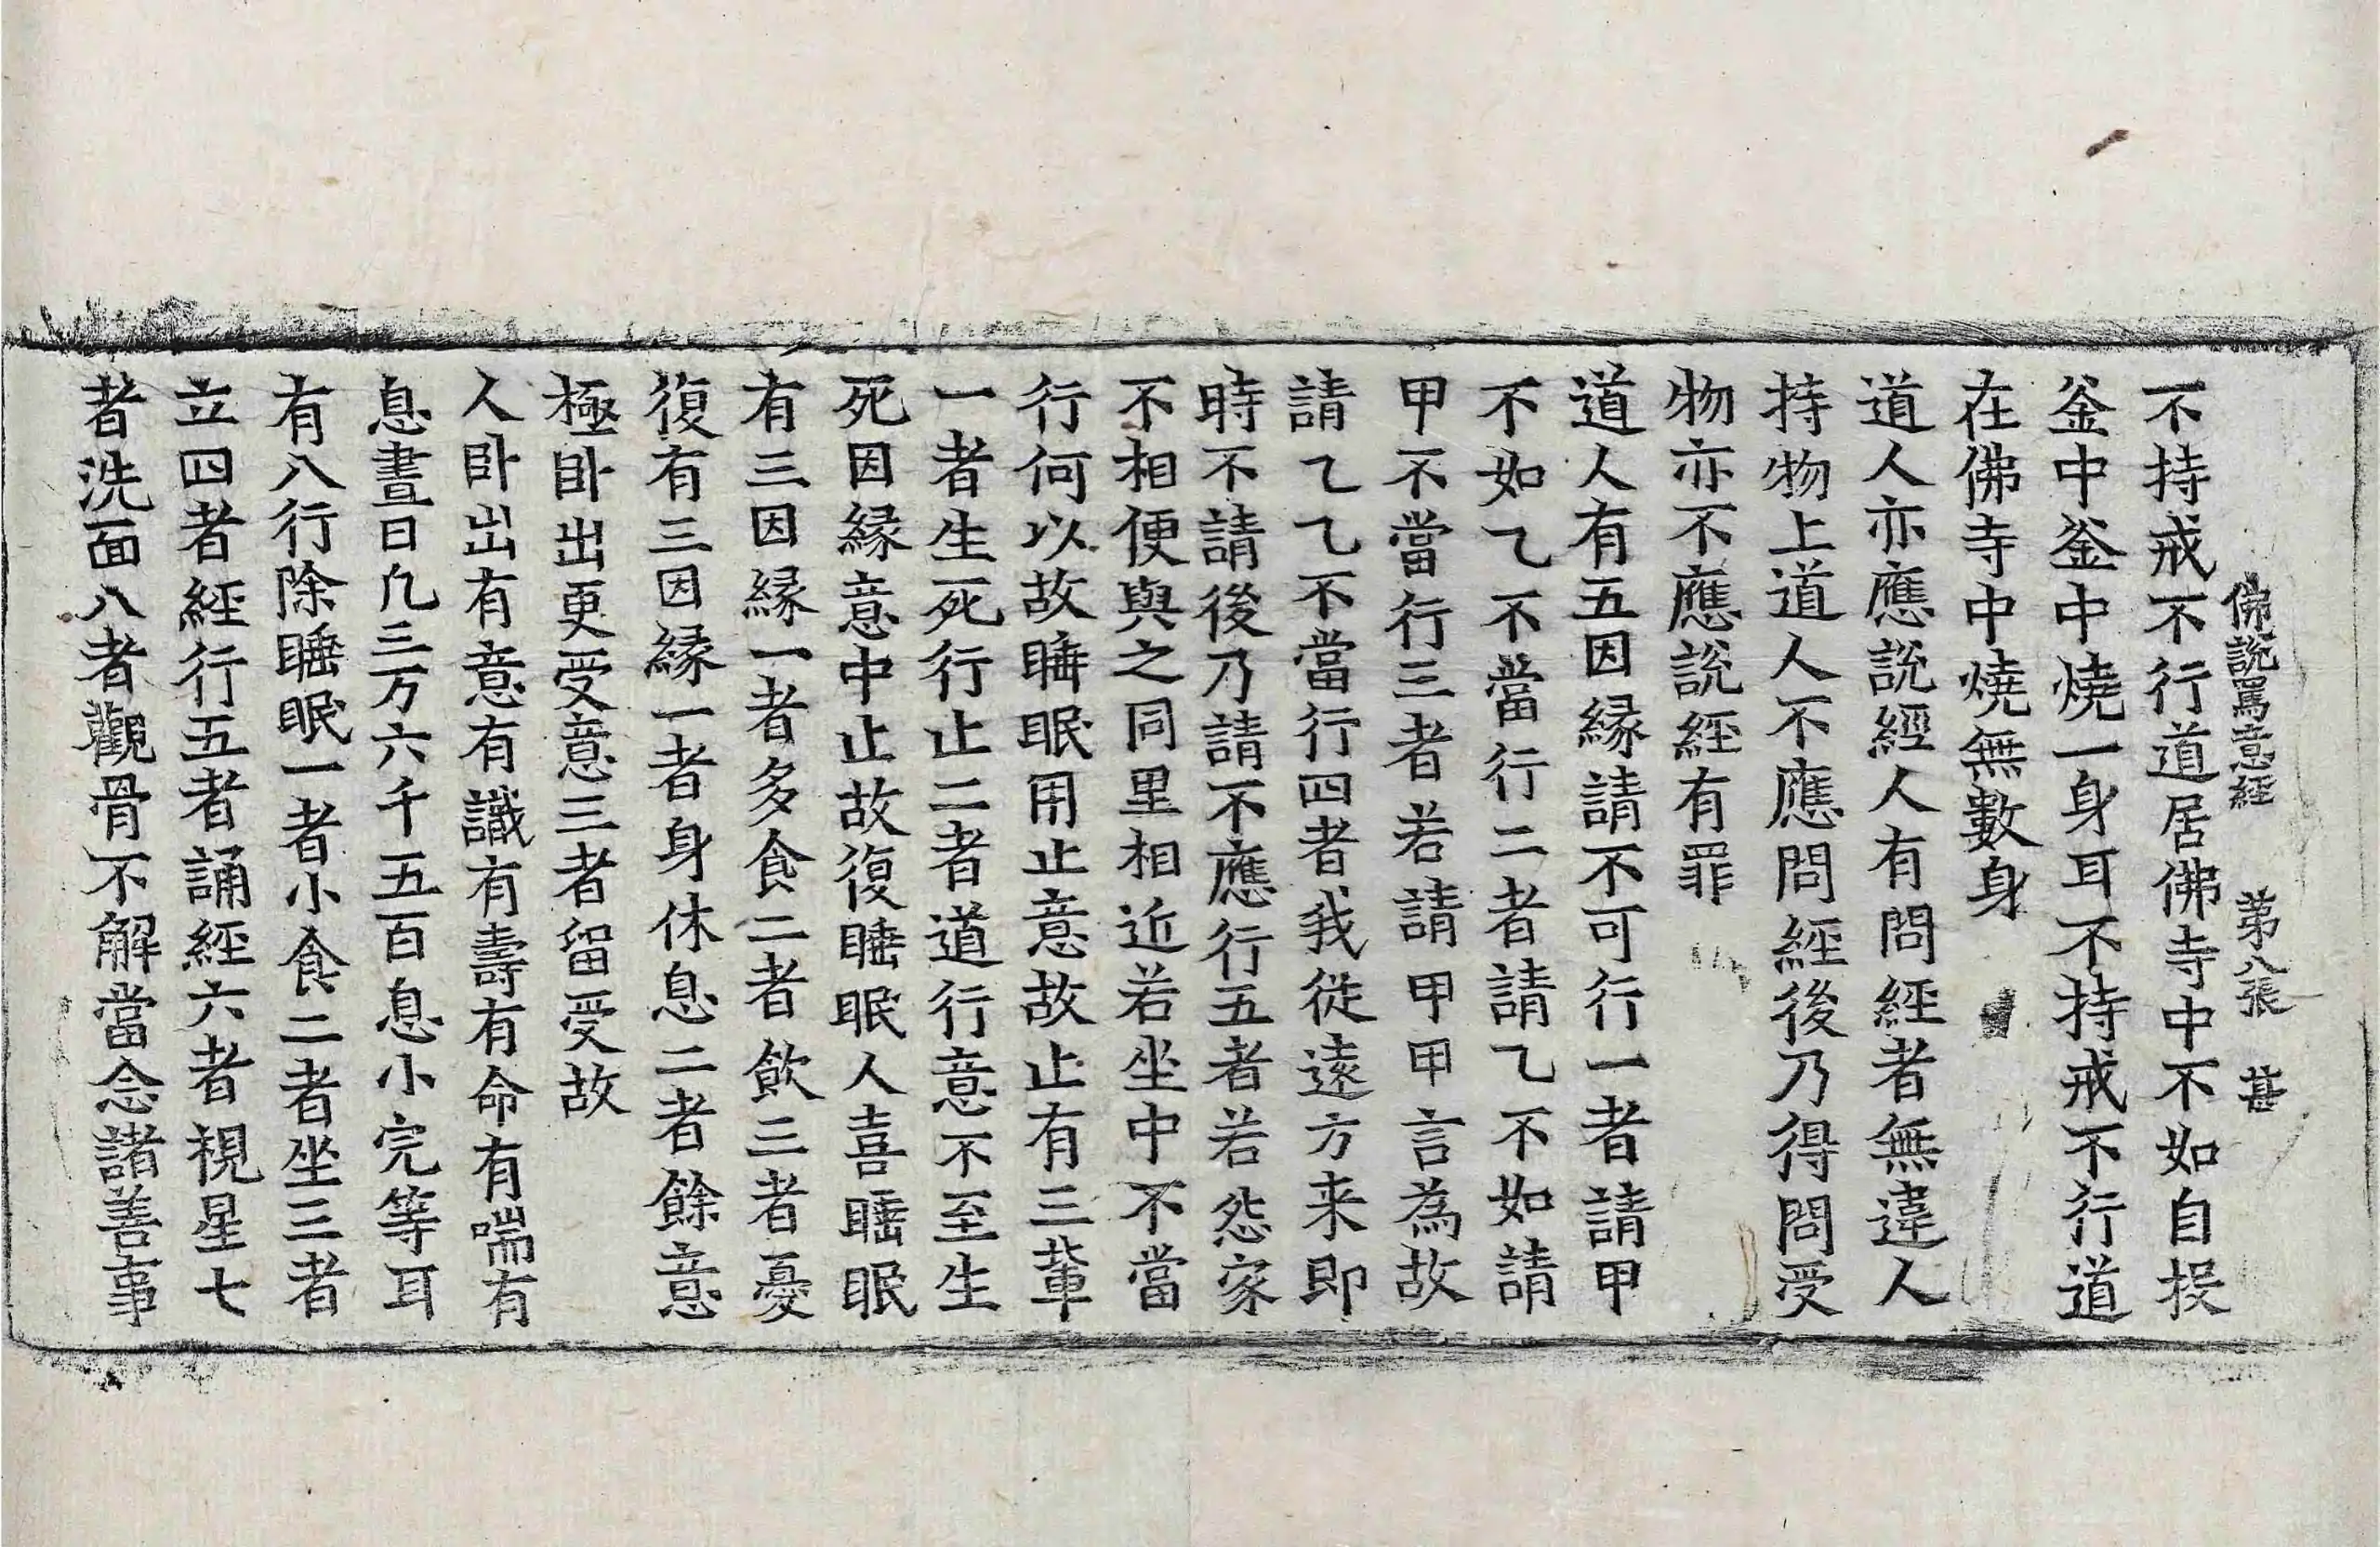 佛說罵意經 第八張 甚
不持戒不行道居佛寺中不如自投
釜中釜中燒一身耳不持戒不行道
在佛寺中燒無數身
道人亦應説經人有問經者無違人
持物上道人不應問經後乃得問受
物亦不應説經有罪
道人有五因縁請不可行一者請甲
不如乙不當行二者請乙不如請
甲不當行三者若請甲甲言為故
請乙乙不當行四者我從遠方来即
時不請後乃請不應行五者若怨家
不相便與之同里相近若坐中不當
行何以故睡眠用止意故止有三輩
一者生死行止二者道行意不至生
死因縁意中止故復睡眠人喜睡眠
有三因縁一者多食二者飲三者憂
復有三因縁一者身休息二者餘意
極卧出更受意三者留受故
人卧出有意有識有壽有命有喘有
息晝日凢三万六千五百息小完等耳
有八行除睡眠一者小食二者坐三者
立四者經行五者誦經六者視星七
者洗面八者觀骨不解當念諸善事